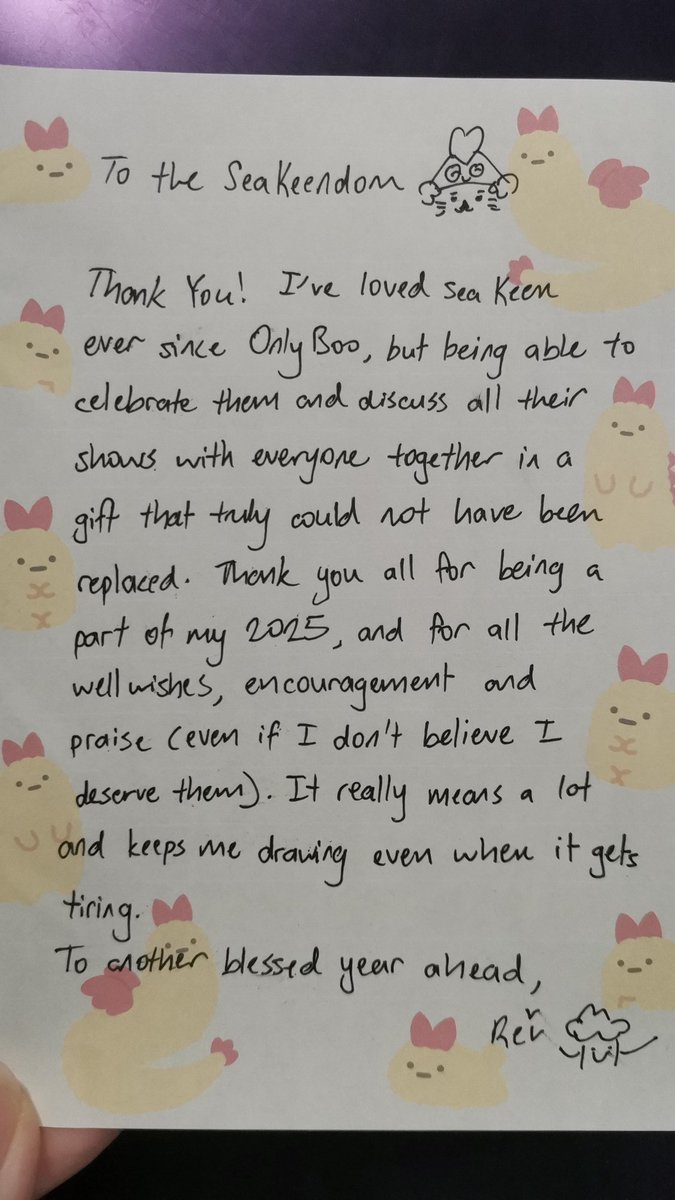 To the SeaKeendom
Thank You! I've loved Sea Keen
ever since Only Boo, but being able to
celebrate them and discuss all their
shows with everyone together in a
gift that truly could not have been
replaced. Thank you all for being a
part of my 2025, and for all the
well wishes, encouragement and
praise (even if I don't believe I
deserve them). It really means a lot
and keeps me drawing even when it gets
tiring.
To another blessed year ahead,